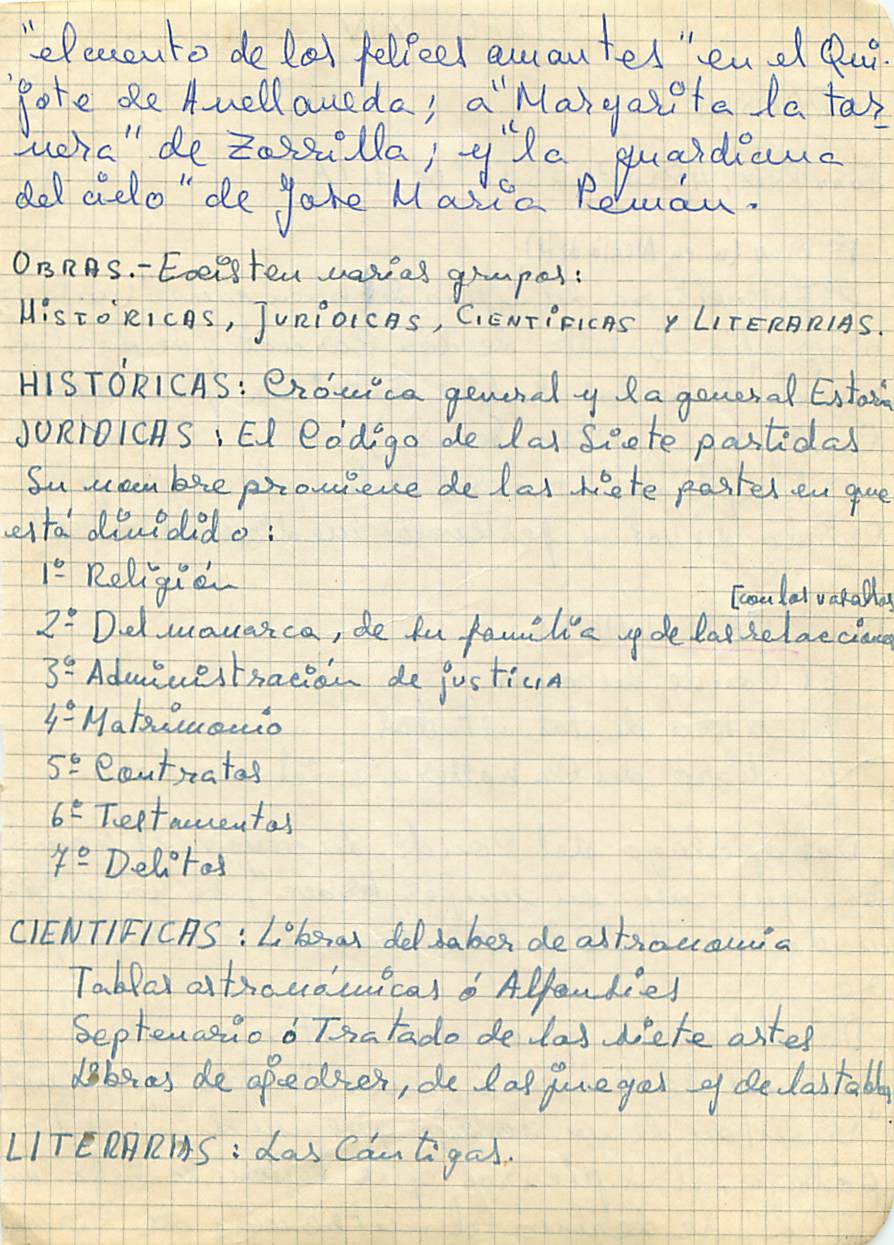 "el cuento de los felices amantes" en el Qui-
jote de Avellaneda; a "Margarita la tor-
nera" de Zorrilla; y "la guardiana
del cielo" de Jose María Pemán.
OBRAS.- Existen varios grupos:
HISTÓRICAS, JURIDICAS, CIENTÍFICAS Y LITERARIAS.
HISTÓRICAS: Crónica general y la general Estoria
JURIDICAS: El Código de las Siete partidas
Su nombre proviene de las siete partes en que
está dividido:
1º Religión
[con los vasallos
2º Del monarca, de su familia y de las relaciones
3º Administración de justicia
4º Matrimonio
5º Contratos
6º Testamentos
7º Delitos
CIENTIFICAS: Libros del saber de astronomía
Tablas astronómicas ó Alfonsíes
Septenario ó Tratado de las siete artes
Libros de ajedrer, de los juegos y de las tablas
LITERARIAS: Las Cántigas.